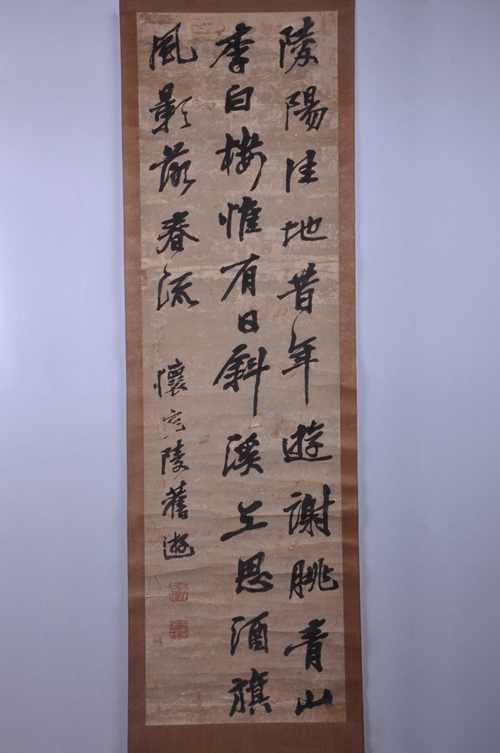 陵陽佳地昔年遊謝朓青山
李白樓惟有日斜溪上思酒旗
風影落春流 懷宛陵舊遊